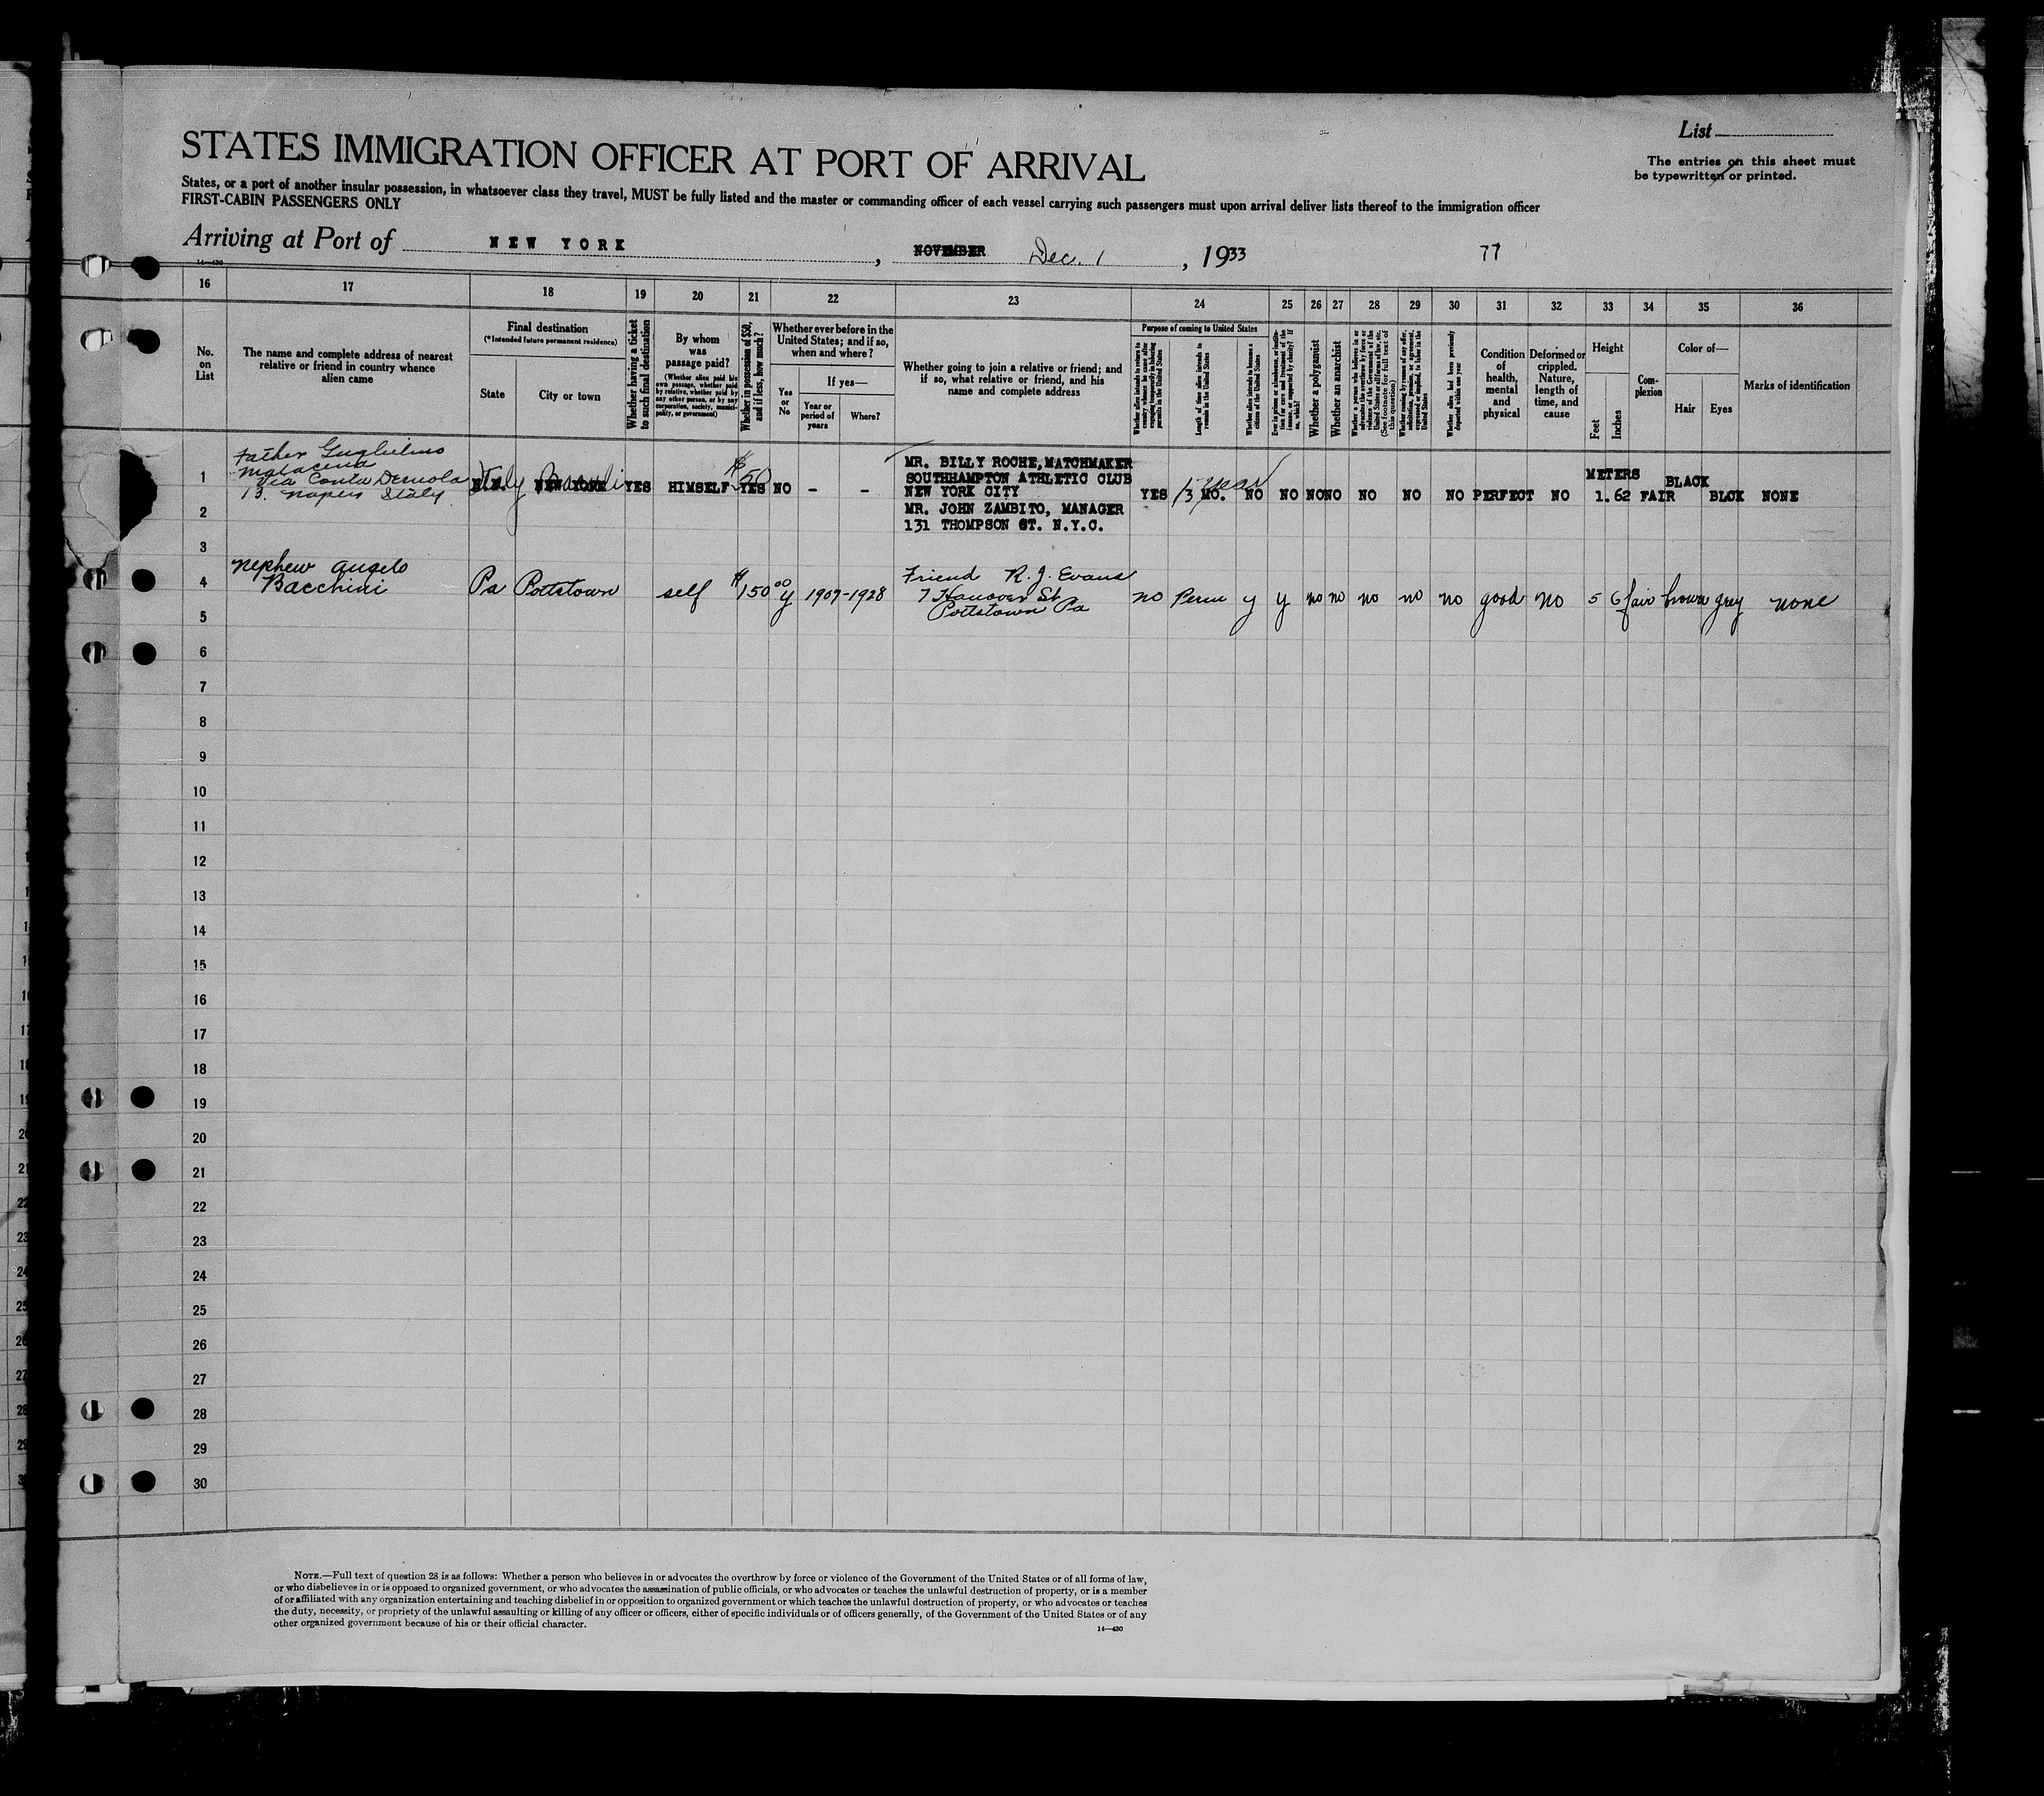 List
The entries on this sheet must
be typewritten or printed.
STATES IMMIGRATION OFFICER AT PORT OF ARRIVAL
States, or a port of another insular possession, in whatsoever class they travel, MUST be fully listed and the master or commanding officer of each vessel carrying such passengers must upon arrival deliver lists thereof to the immigration officer
FIRST-CABIN PASSENGERS ONLY
Arriving at Port of NEW YORK, NOVEMBER Dec. 1, 1933 77
14—430
16 17 18 19 20 21 22 23 24 25 26 27 28 29 30 31 32 33 34 35 36
No. on List
The name and complete address of nearest relative or friend in country whence alien came
Final destination
(*Intended future permanent residence)
State
City or town
Whether having a ticket to such final destination
By whom was passage paid?
(Whether alien paid his own passage, whether paid by relative, whether paid by any other person, or by any corporation, society, municipality, or government)
Whether in possession of $50, and if less, how much?
Whether ever before in the United States; and if so, when and where?
Yes or No
If yes—
Year or period of years
Where?
Whether going to join a relative or friend; and if so, what relative or friend, and his name and complete address
Purpose of coming to United States
Length of time alien intends to remain in the United States
Whether alien intends to become a citizen of the United States
Whether a polygamist
Whether an anarchist
Whether alien had been previously deported within one year
Condition of health, mental and physical
Deformed or crippled. Nature, length of time, and cause
Height
Feet
Inches
Complexion
Color of—
Hair
Eyes
Marks of identification
Father Guglielmo
Malacena
Via Conta
13. Naples Italy
1 Italy NEW YORK YES HIMSELF $50 YES NO - -
MR. BILLY ROCHE, MATCHMAKER
SOUTHHAMPTON ATHLETIC CLUB
NEW YORK CITY
MR. JOHN ZAMBITO, MANAGER
131 THOMPSON ST. N.Y.C.
YES 3 MO. 1 year NO NO NO NO NO NO NO PERFECT NO METERS 1.62 FAIR BLACK BLCK NONE
2
3
Nephew Angelo
Bacchini
4 Pa Pottstown self $150 00 y 1907-1928
Friend R. J. Evans
7 Hanover St
Pottstown Pa
no Perm y y no no no no no good no 5 6 fair brown grey none
5
6
7
8
9
10
11
12
13
14
15
16
17
18
19
20
21
22
23
24
25
26
27
28
29
30
NOTE.—Full text of question 28 is as follows: Whether a person who believes in or advocates the overthrow by force or violence of the Government of the United States or of all forms of law,
or who disbelieves in or is opposed to organized government, or who advocates the assassination of public officials, or who advocates or teaches the unlawful destruction of property, or is a member
of or affiliated with any organization entertaining and teaching disbelief in or opposition to organized government or which teaches the unlawful destruction of property, or who advocates or teaches
the duty, necessity, or propriety of the unlawful assaulting or killing of any officer or officers, either of specific individuals or of officers generally, of the Government of the United States or of any
other organized government because of his or their official character.
14—430